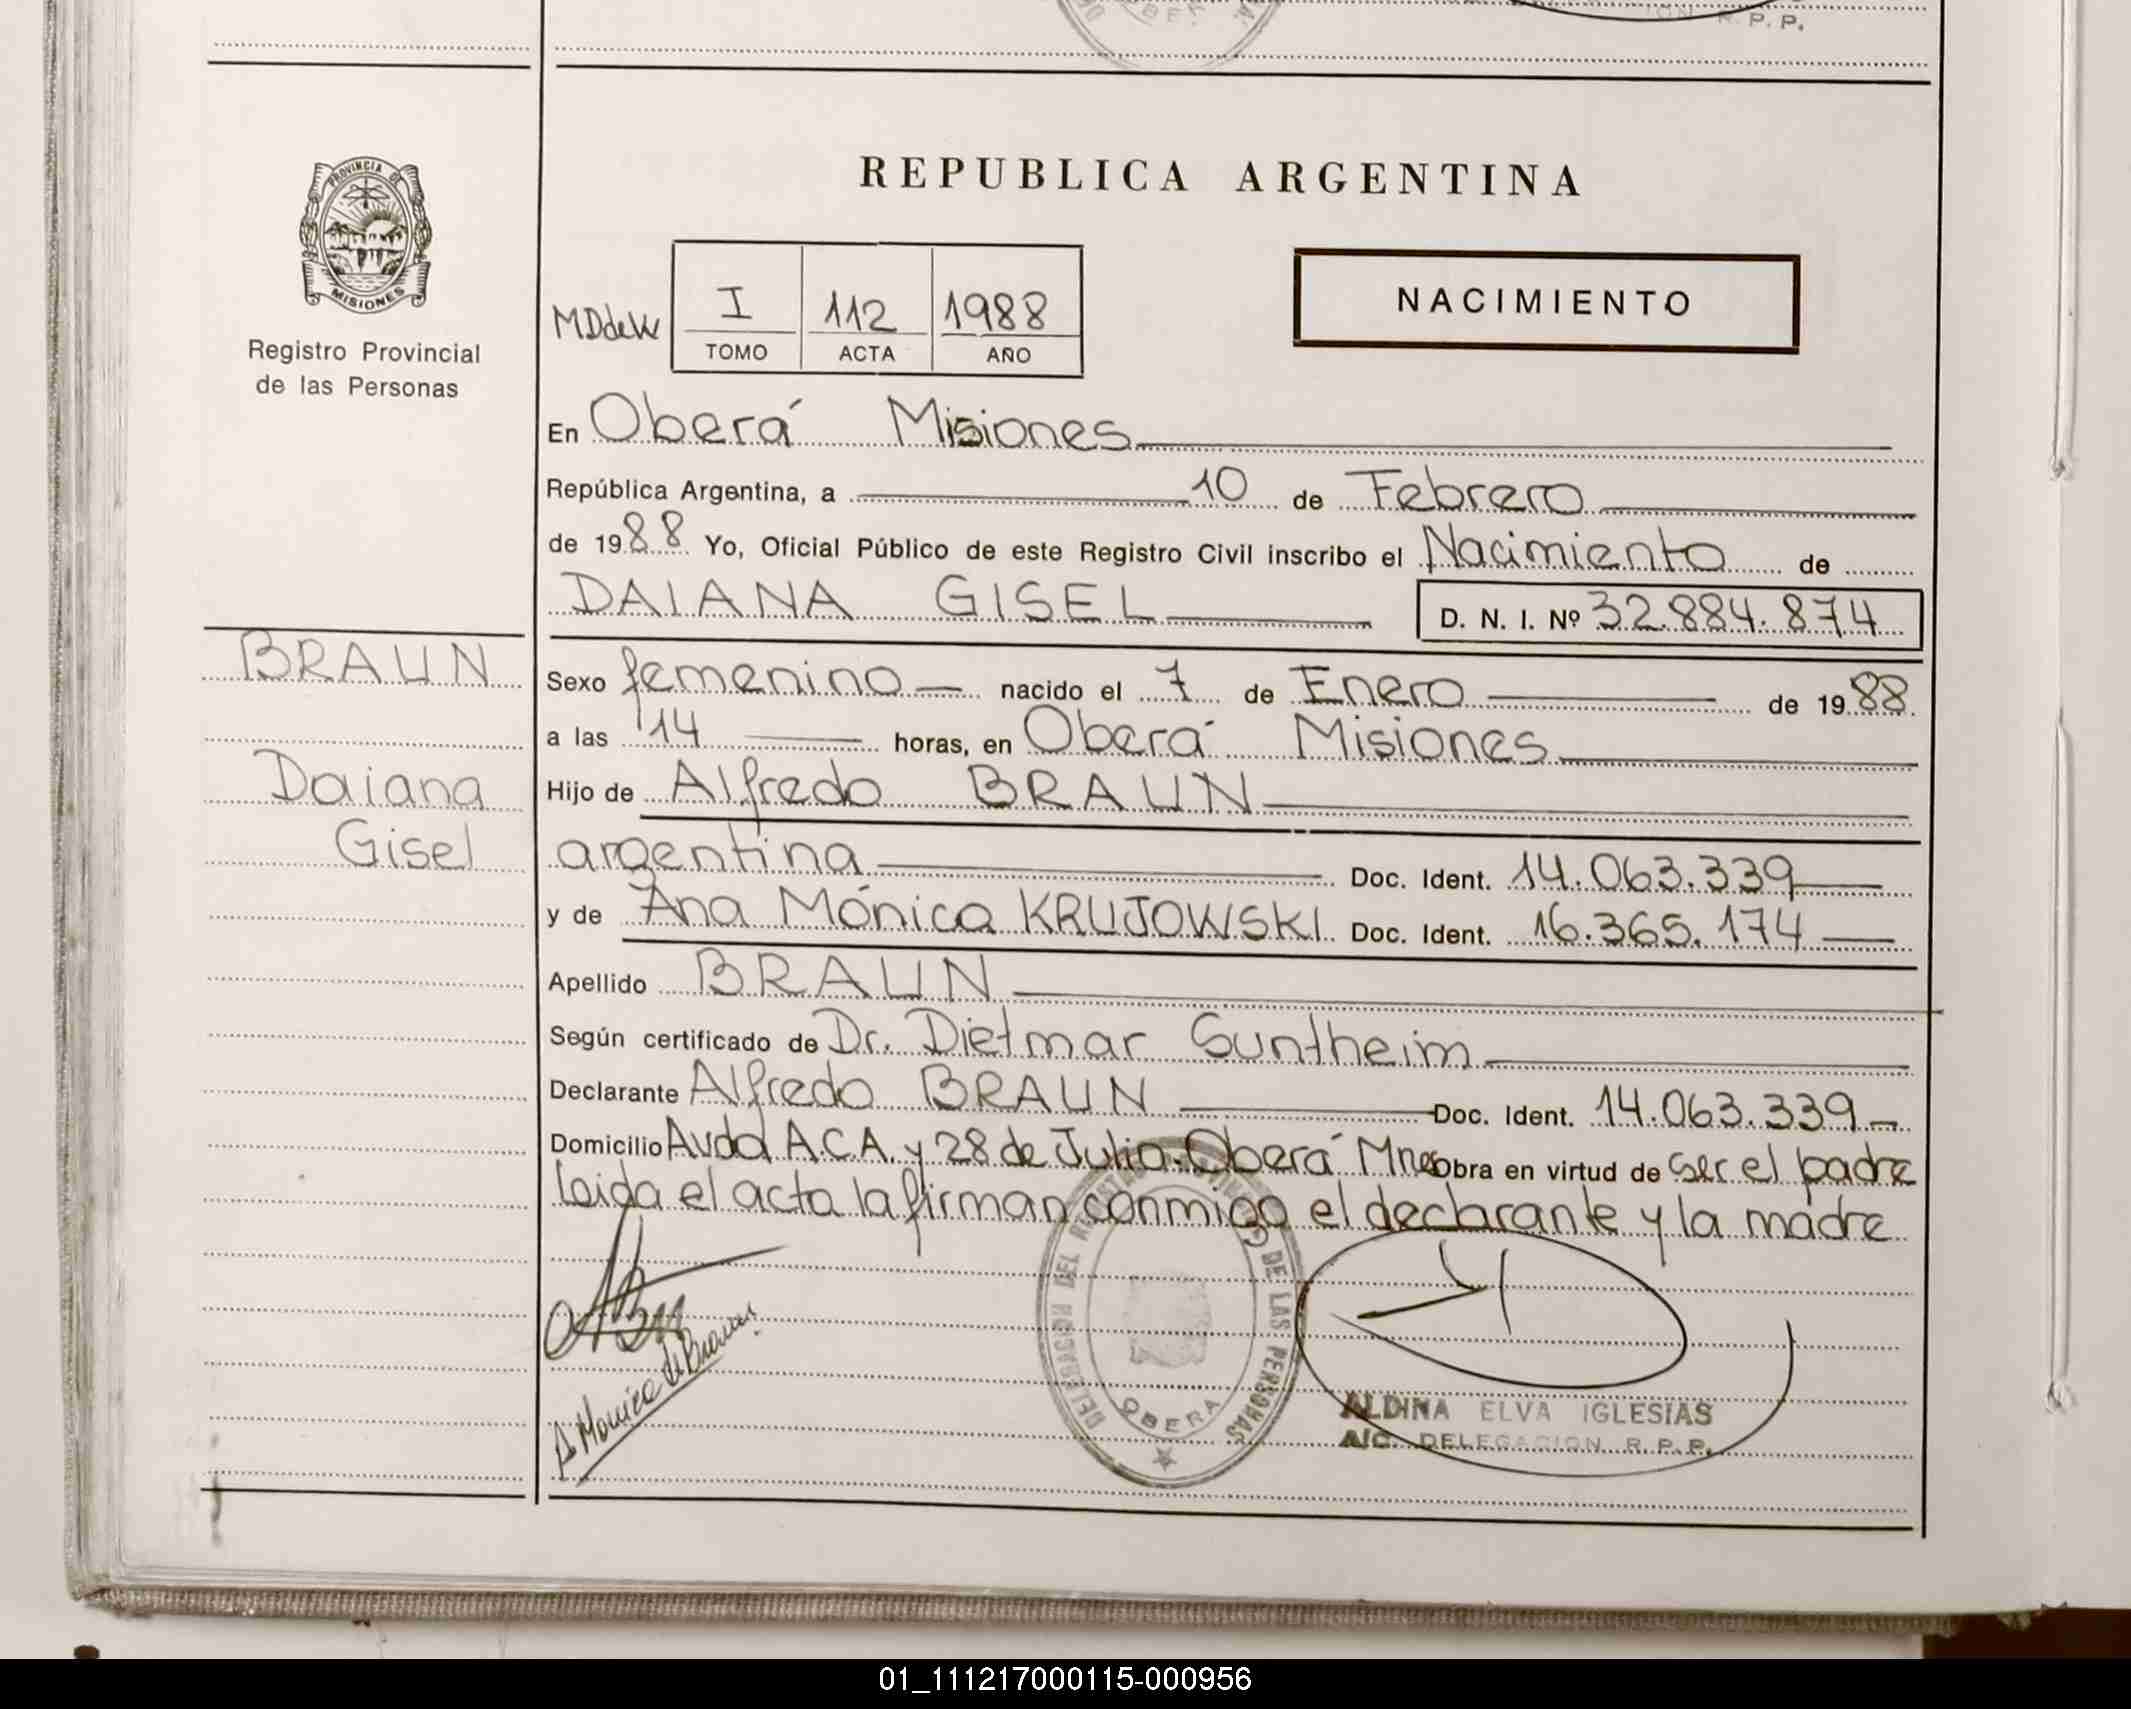 BER
R. P. P.
PROVINCIA DE
MISIONES
Registro Provincial
de las Personas
REPUBLICA ARGENTINA
NACIMIENTO
MDdeW
I 112 1988
TOMO ACTA AÑO
En Oberá Misiones
República Argentina, a 10 de Febrero
de 1988 Yo, Oficial Público de este Registro Civil inscribo el Nacimiento de
DAIANA GISEL D. N. I. Nº 32.884.874
BRAUN
Daiana
Gisel
Sexo femenino nacido el 7 de Enero de 1988
a las 14 horas, en Oberá Misiones
Hijo de Alfredo BRAUN
argentina Doc. Ident. 14.063.339
y de Ana Mónica KRUJOWSKI Doc. Ident. 16.365.174
Apellido BRAUN
Según certificado de Dr. Dietmar Suntheim
Declarante Alfredo BRAUN Doc. Ident. 14.063.339
Domicilio Avda A.C.A. y 28 de Julio. Oberá Mnes Obra en virtud de ser el padre
leida el acta la firman conmigo el declarante y la madre
A. Monica de Braun
DELEGACION DEL REGISTRO DE LAS PERSONAS
OBERA
ALDINA ELVA IGLESIAS
A/C. DELEGACION R. P. P.
01_111217000115-000956